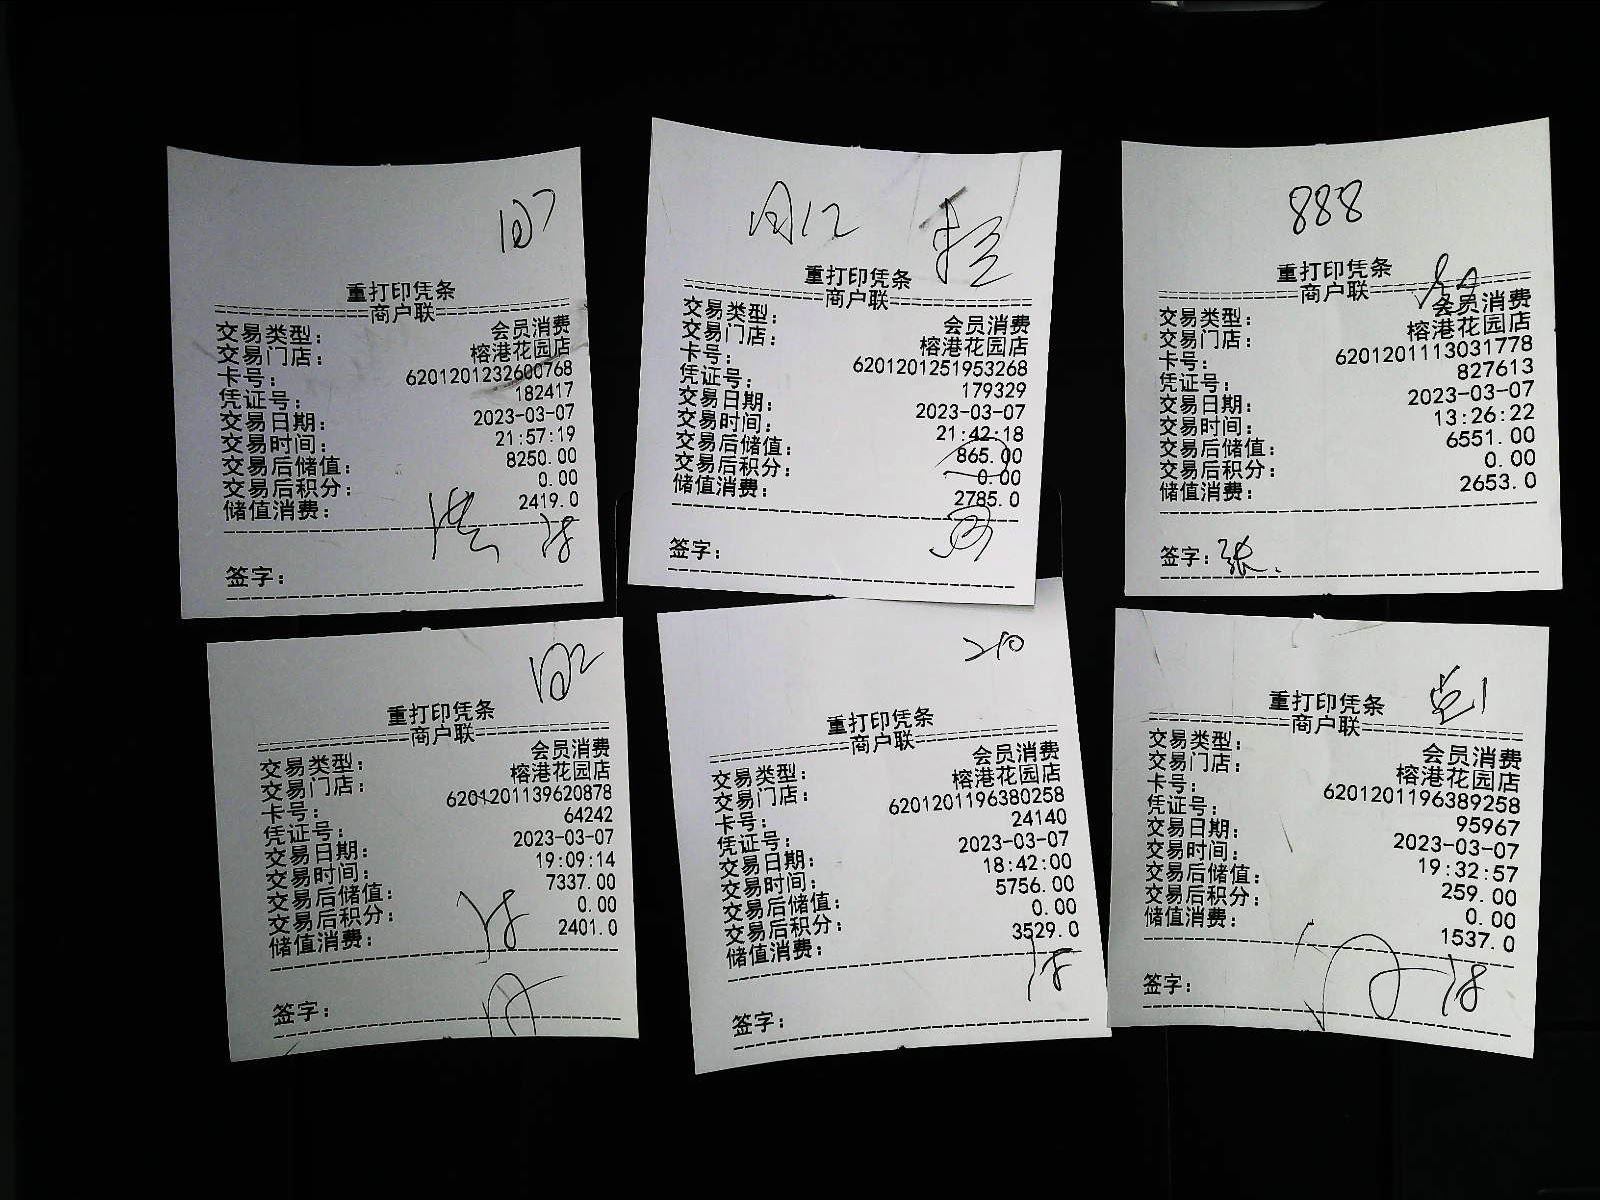 107
重打印凭条
商户联
交易类型： 会员消费
交易门店： 榕港花园店
卡号： 6201201232600768
凭证号： 182417
交易日期： 2023-03-07
交易时间： 21:57:19
交易后储值： 8250.00
交易后积分： 0.00
储值消费： 2419.0
签字：
重打印凭条
商户联
交易类型： 会员消费
交易门店： 榕港花园店
卡号： 6201201251953268
凭证号： 179329
交易日期： 2023-03-07
交易时间： 21:42:18
交易后储值： 865.00
交易后积分： 0.00
储值消费： 2785.0
签字：
888
重打印凭条
商户联
交易类型： 会员消费
交易门店： 榕港花园店
卡号： 6201201113031778
凭证号： 827613
交易日期： 2023-03-07
交易时间： 13:26:22
交易后储值： 6551.00
交易后积分： 0.00
储值消费： 2653.0
签字：张
102
重打印凭条
商户联
交易类型： 会员消费
交易门店： 榕港花园店
卡号： 6201201139620878
凭证号： 64242
交易日期： 2023-03-07
交易时间： 19:09:14
交易后储值： 7337.00
交易后积分： 0.00
储值消费： 2401.0
签字：
210
重打印凭条
商户联
交易类型： 会员消费
交易门店： 榕港花园店
卡号： 6201201196380258
凭证号： 24140
交易日期： 2023-03-07
交易时间： 18:42:00
交易后储值： 5756.00
交易后积分： 0.00
储值消费： 3529.0
签字：
重打印凭条
商户联
交易类型： 会员消费
交易门店： 榕港花园店
卡号： 6201201196389258
凭证号： 95967
交易日期： 2023-03-07
交易时间： 19:32:57
交易后储值： 259.00
交易后积分： 0.00
储值消费： 1537.0
签字：